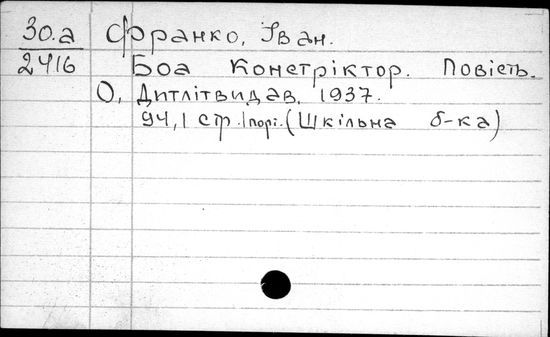 30.а Франко, Іван.
2416 Боа Констріктор. Повість.
О, Дитлітвидав, 1937.
94,1 стр. (Шкільна б-ка)